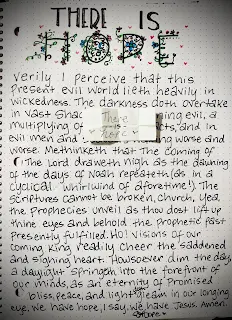 THERE IS
HOPE
Verily I perceive that this
present evil world lieth heavily in
wickedness. The darkness doth overtake
in vast evil, a
multiplying of and in
evil men and worse and
worse. Methinketh that The coming of
The Lord draweth nigh as the dawning
of the days of Noah repeateth (as in a
cyclical whirlwind of aforetime!). The
scriptures cannot be broken, church, Yea,
the prophecies unveil as thou dost lift up
thine eyes and behold the Prophetic Past
Presently fulfilled. HO! Visions of our
coming King really cheer the saddened
and sighing heart. Howsoever dim the day,
a daylight springeth into the forefront of
our minds, as an eternity of Promised
bliss, peace, and light gleam in our longing
eye. We have hope, I say, we have Jesus. Amen!